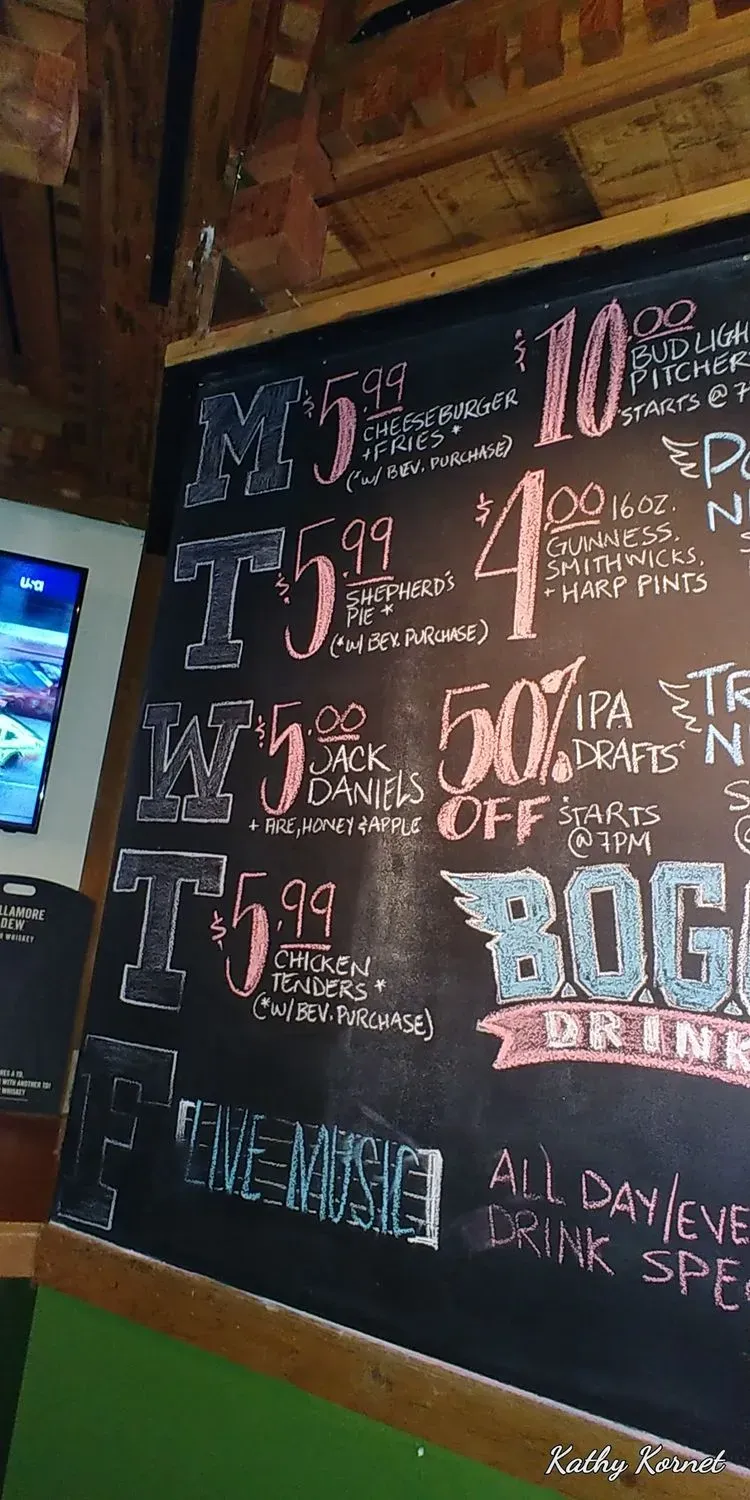 M
$5.99
CHEESEBURGER
+FRIES *
(*W/ BEV. PURCHASE)
$10.00
BUD LIGH
PITCHER
STARTS @ 7
T
$5.99
SHEPHERD'S
PIE *
(*W/ BEV. PURCHASE)
$4.00 16OZ.
GUINNESS,
SMITHWICKS,
+ HARP PINTS
PO
N
W
$5.00
JACK
DANIELS
+ FIRE, HONEY & APPLE
50% IPA
DRAFTS
OFF STARTS
@ 7PM
TR
N
S
T
$5.99
CHICKEN
TENDERS *
(*W/ BEV. PURCHASE)
B.O.G.
DRINK
F
LIVE MUSIC
ALL DAY/EVE
DRINK SPE
usa
LLAMORE
DEW
WHISKEY
WITH ANOTHER TO!
WHISKEY
Kathy Kornet